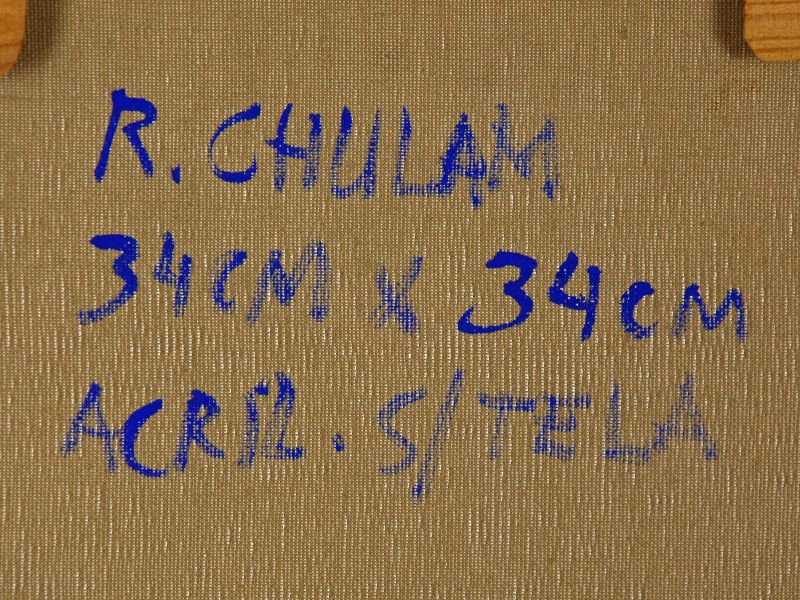 R. CHULAM
34CM X 34CM
ACRIL. S/TELA